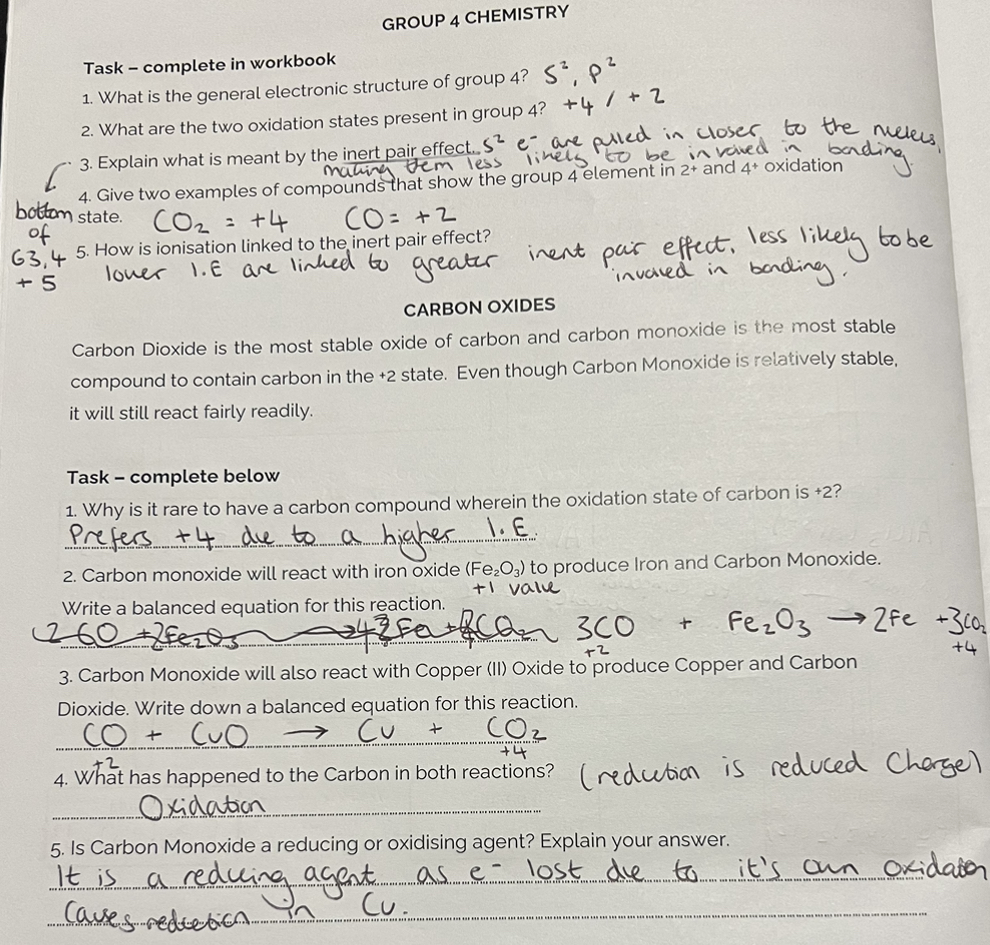 GROUP 4 CHEMISTRY
Task – complete in workbook
1. What is the general electronic structure of group 4? S², P²
2. What are the two oxidation states present in group 4? +4 / +2
3. Explain what is meant by the inert pair effect. S² e⁻ are pulled in closer to the nucleus,
making them less likely to be involved in bonding.
4. Give two examples of compounds that show the group 4 element in 2+ and 4+ oxidation
state. CO₂ = +4 CO = +2
bottom
of
G3,4
+ 5
5. How is ionisation linked to the inert pair effect?
lower I.E are linked to greater inert pair effect, less likely to be
involved in bonding.
CARBON OXIDES
Carbon Dioxide is the most stable oxide of carbon and carbon monoxide is the most stable
compound to contain carbon in the +2 state. Even though Carbon Monoxide is relatively stable,
it will still react fairly readily.
Task – complete below
1. Why is it rare to have a carbon compound wherein the oxidation state of carbon is +2?
Prefers +4 due to a higher I.E.
2. Carbon monoxide will react with iron oxide (Fe₂O₃) to produce Iron and Carbon Monoxide.
+1 value
Write a balanced equation for this reaction.
3CO + Fe₂O₃ → 2Fe + 3CO₂
+2 +4
3. Carbon Monoxide will also react with Copper (II) Oxide to produce Copper and Carbon
Dioxide. Write down a balanced equation for this reaction.
CO + CuO → Cu + CO₂
+2 +4
4. What has happened to the Carbon in both reactions? (reduction is reduced Charge)
Oxidation
5. Is Carbon Monoxide a reducing or oxidising agent? Explain your answer.
It is a reducing agent as e⁻ lost due to it's own oxidation
Causes reduction in Cu.